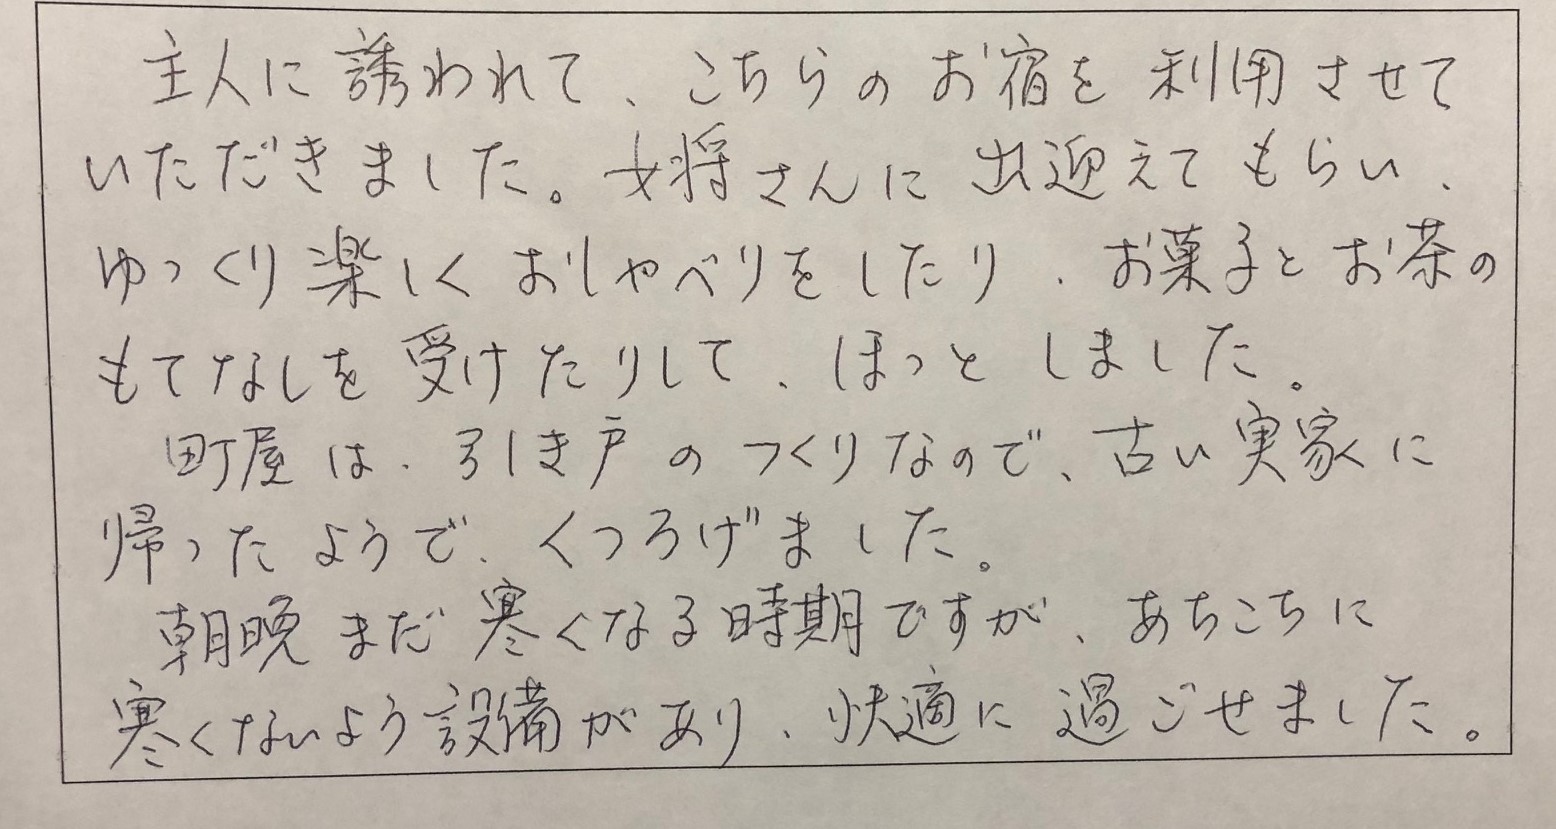 主人に誘われて、こちらのお宿を利用させて
いただきました。女将さんに出迎えてもらい、
ゆっくり楽しくおしゃべりをしたり、お菓子とお茶の
もてなしを受けたりして、ほっとしました。
町屋は、引き戸のつくりなので、古い実家に
帰ったようで、くつろげました。
朝晩まだ寒くなる時期ですが、あちこちに
寒くないよう設備があり、快適に過ごせました。